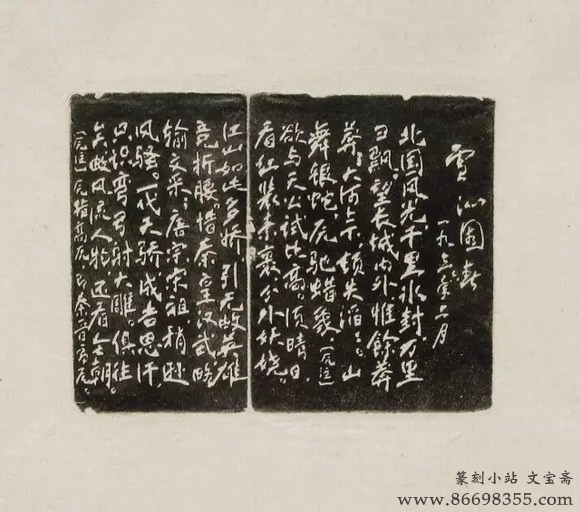 雪 沁園春
一九三六年二月
北国风光，千里冰封，万里
雪飘。望长城内外，惟餘莽
莽；大河上下，顿失滔滔。山
舞银蛇，原驰蜡象，（原注）
欲与天公试比高。须晴日，
看红装素裹，分外妖娆。
江山如此多娇，引无数英雄
竞折腰。惜秦皇汉武，略
输文采；唐宗宋祖，稍逊
风骚。一代天骄，成吉思汗，
只识弯弓射大雕。俱往
矣，数风流人物，还看今朝。
（原注）原指高原，即秦晋高原。
篆刻小站 文宝斋
www.86698355.com